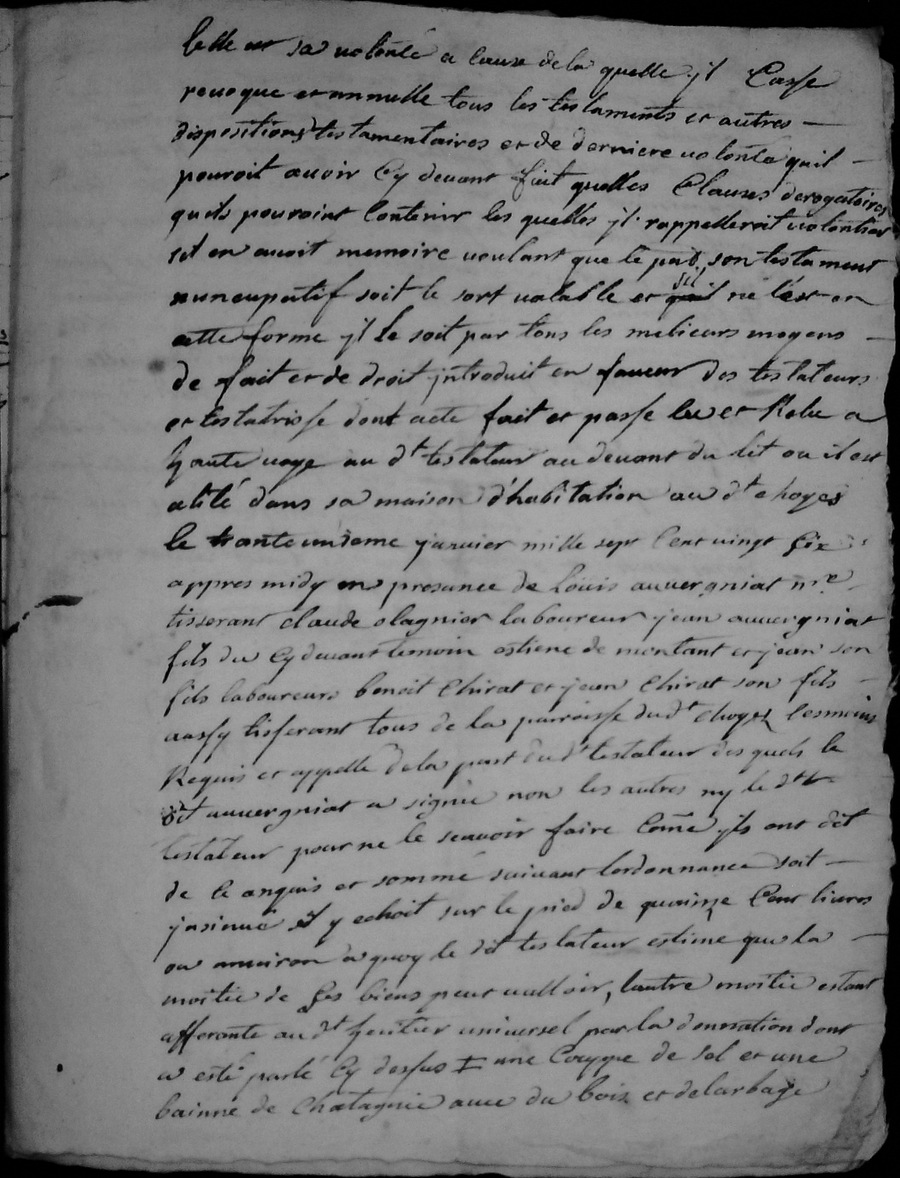 telle est sa volonté a cause de la quelle jl Casse
revoque et annulle tous les testaments et autres —
dispositions testamentaires et de derniere volonté quil —
pouroit avoir Cy devant fait quelles Clauses derogatoires
quils pouroint Contenir les quelles jl rappelleroit volontier
sil en avoit memoire voulant que le pnt. son testament
nuncupatif soit le sort valable et sil ne lest en
cette forme jl le soit par tous les melieurs moyens —
de fait et de droit jntroduit en faveur des testateurs
et testatrisse dont acte fait et passe lu et Relu a
haute voye au dt testateur au devant du lit ou il est
alité dans sa maison d'habitation au dt choyes
le trante unieme janvier mille sept Cent vingt six
appres midy en presance de Louis auvergniat mre
tisserant claude olagnier laboureur jean auvergniat
fils du Cy devant temoin estiene de montant et jean son
fils laboureurs benoit Chirat et jean Chirat son fils —
aussy tisserant tous de la parroisse du dt choyes tesmoins
Requis et appellé de la part du dt testateur des quels le
dit auvergniat a signié non les autres ny le dt
testateur pour ne le scavoir faire Come jls ont dit
de ce anquis et sommé suivant lordonnance soit —
jnsinué sil y echoit sur le pied de quinze Cent livres
ou anviron a quoy le dit testateur estime que la —
moitié de ses biens peut valloir, lautre moitié estant
afferante au dt heritier universel par la donnation dont
a esté parlé Cy dessus ‡ une Couppe de sel et une
bainne de Chatagnie avec du bois et de larbage